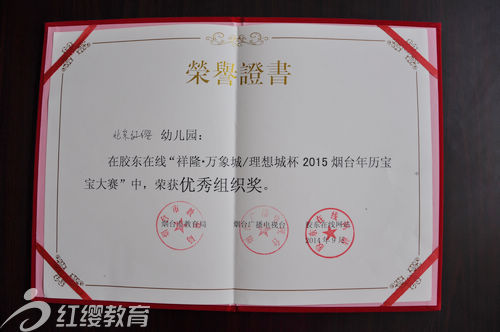 榮譽證書
北京红缨 幼儿园：
在胶东在线“祥隆·万象城/理想城杯 2015 烟台年历宝
宝大赛”中，荣获优秀组织奖。
烟台市教育局 烟台广播电视台 胶东在线网站
2014年9月
红缨教育